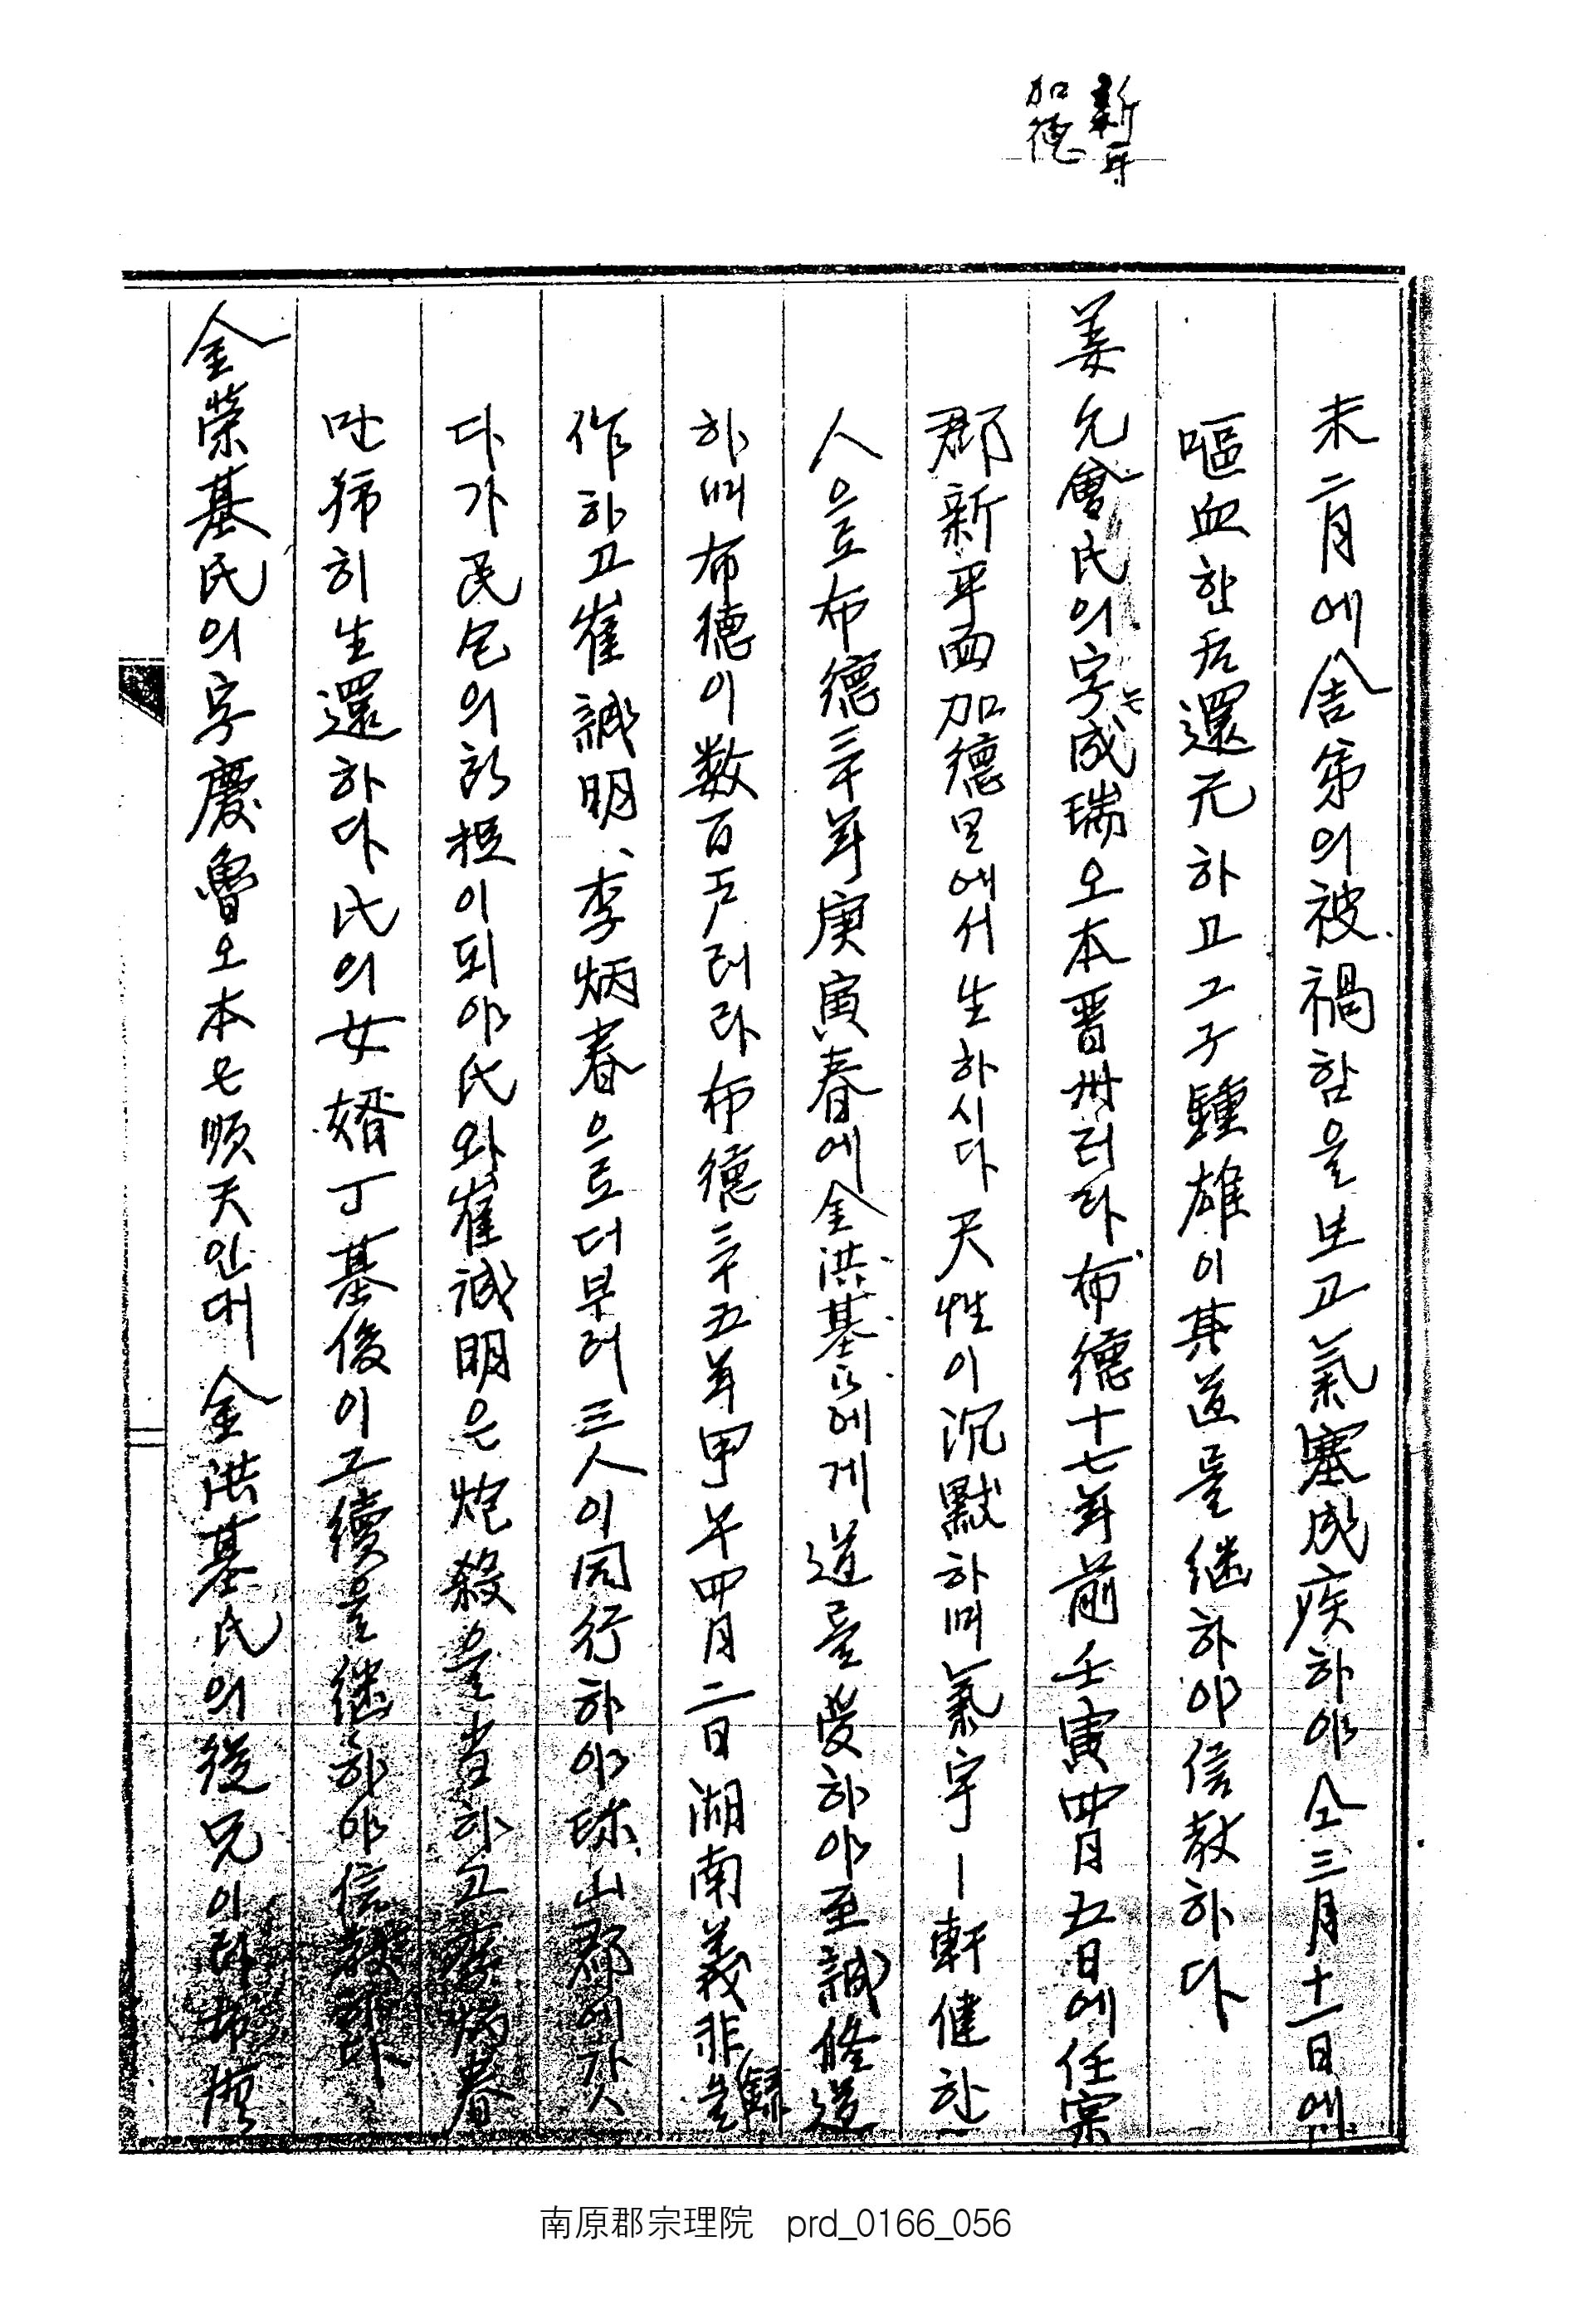 新平
加德
未二月에 舍弟의 被禍함을 보고 氣塞成疾하야 仝三月十一日에
嘔血한后 還元하고 그子 鍾雄이 其道를 継하야 信敎하다
姜允會氏의 字는 成瑞오 本晋州러라 布德十七年前壬寅四月五日에 任實
郡新平面加德里에서 生하시다 天性이 沉默하며 氣宇ㅣ軒健한
人으로 布德三十一年庚寅春에 金洪基氏에게 道를 受하야 至誠修道
하며 布德이 数百戶러라 布德三十五年甲午四月二日 湖南義非錄을
作하고 崔誠明、李炳春으로더부러 三人이 同行하야 珎山郡에가
다가 民包의 이되야 氏와 崔誠明은 炮殺을 當하고 李炳春
은 히 生還하다 氏의 女婿 丁基俊이 그 續을 継하야 信敎하다
金榮基氏의 字慶魯오 本은 順天인대 金洪基氏의 從兄이라 布德
南原郡宗理院 prd_0166_056